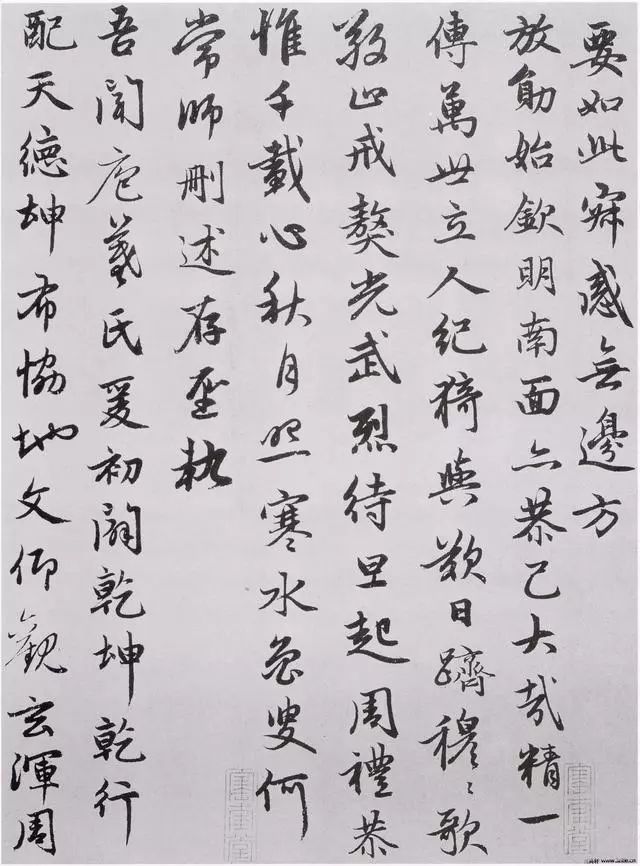 要如此寂感無邊方
放勛始欽明南面亦恭己大哉精一
傳萬世立人紀猗與歎日躋穆〻歌
敬止戒獒光武烈待旦起周禮恭
惟千載心秋月照寒水魯叟何
常師刪述存聖軌
吾聞庖羲氏爰初闢乾坤乾行
配天德坤布協地文仰觀玄渾周